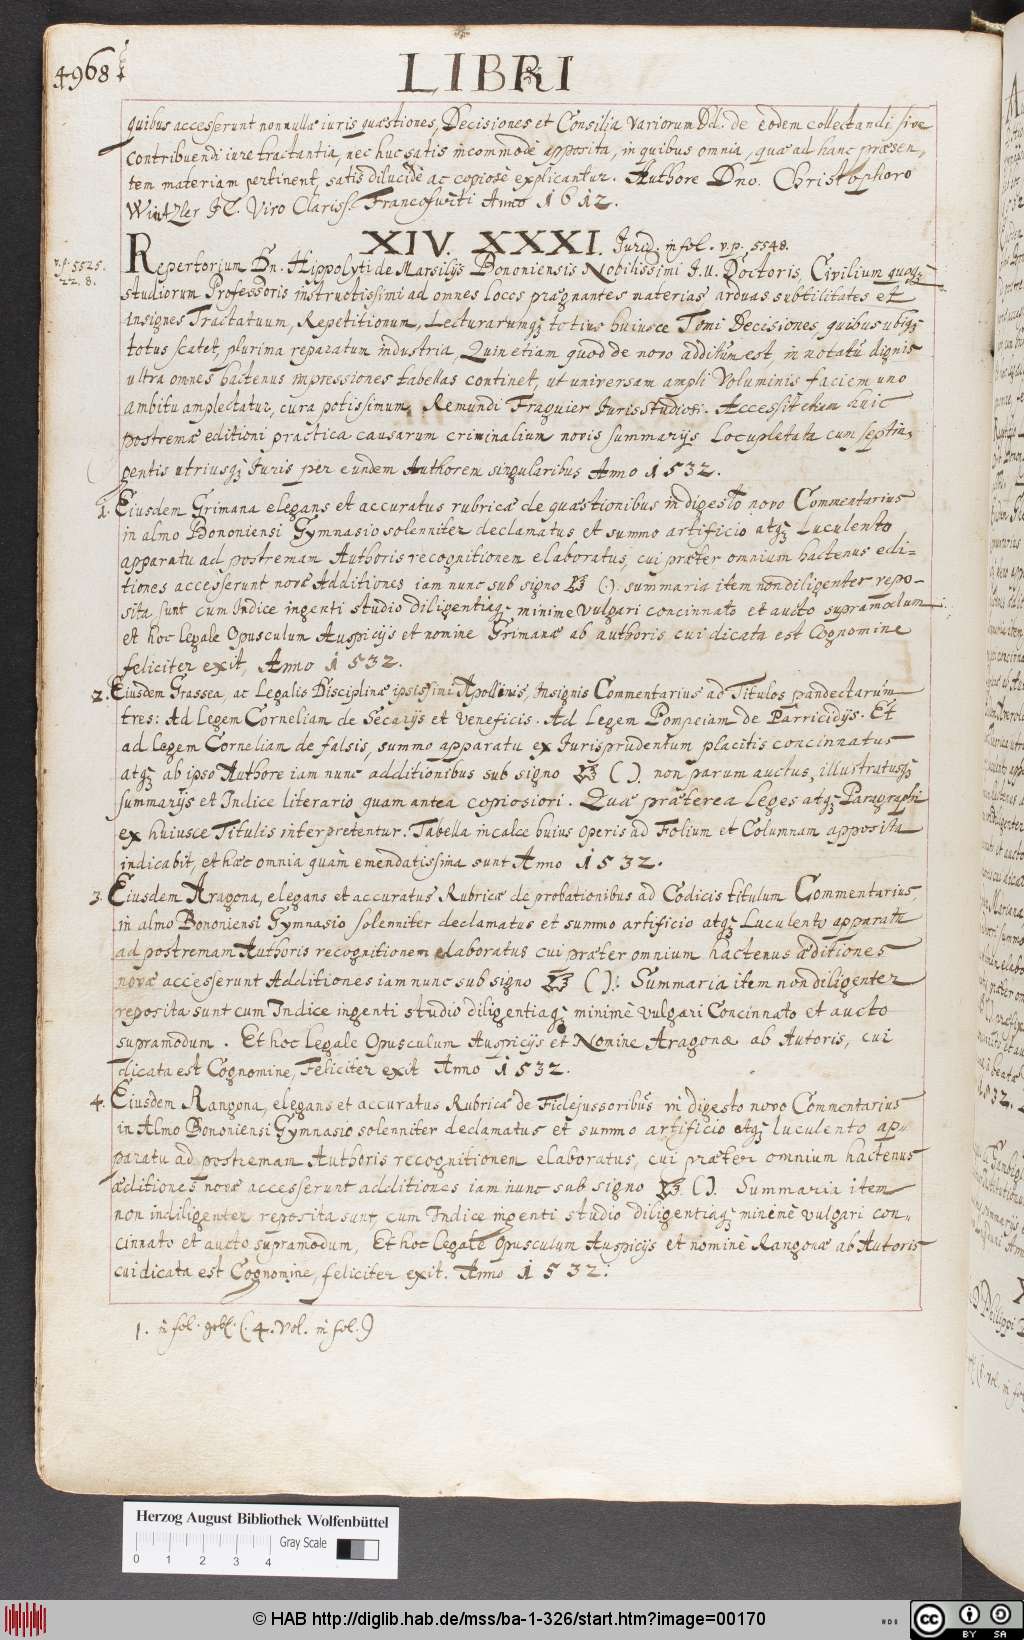 4968
LIBRI
quibus accesserunt nonnullæ iuris quæstiones, Decisiones et Consilia variorum Dd. de eodem collectandi sive
contribuendi iure tractantia, nec huc satis incommodè apposita, in quibus omnia, quæ ad hanc præsen,
tem materiam pertinent, satis dilucidè ac copiosè explicantur. Authore Dno. Christophoro
Wintzler JC. Viro Clariss. Francofurti Anno 1612.
XIV. XXXI. Jurid. in fol. v. p. 5548.
v. p. 5525.
22. 8.
Repertorium Dn. Hippolyti de Marsilijs Bononiensis Nobilissimi J. U. Doctoris, Civilium quoqꝫ
studiorum Professoris instructissimi ad omnes locos prægnantes materias arduas subtilitates et
insignes Tractatuum, Repetitionum, Lecturarumqꝫ totius huiusce Tomi Decisiones, quibus ubiqꝫ
totus scatet, plurima reparatum industria, Quin etiam quod de novo additum est, in notatú dignis
ultra omnes hactenus impressiones tabellas continet, ut universam ampli Voluminis faciem uno
ambitu amplectatur, cura potissimum, Remundi Fraguier Juris studiosi. Accessit etiam huic
postremæ editioni practica causarum criminalium novis summarijs Locupletata cum septin,
gentis utriusqꝫ Juris per eundem Authorem singularibus Anno 1532.
1. Eiusdem Grimana elegans et accuratus rubricæ de quæstionibus in digesto novo Commentarius
in almo Bononiensi Gymnasio solenniter declamatus et summo artificio atqꝫ Luculento
apparatu ad postremam Authoris recognitionem elaboratus, cui præter omnium hactenus edi=
tiones accesserunt novæ Additiones iam nunc sub signo (.). summaria item non diligenter repo-
sita sunt cum Indice ingenti studio diligentiaqꝫ minime vulgari concinnato et aucto supramodum
et hoc legale Opusculum Auspicijs et nomine Grimanæ ab authoris cui dicata est Cognomine
feliciter exit, Anno 1532.
2. Eiusdem Grassea, ac Legalis Disciplinæ ipsissimi Apollinis, Insignis Commentarius ad Titulos pandectarum
tres: Ad Legem Corneliam de Secarijs et veneficis. Ad Legem Pompeiam de Parricidijs. Et
ad Legem Corneliam de falsis, summo apparatu ex Jurisprudentum placitis concinnatus
atqꝫ ab ipso Authore iam nunc additionibus sub signo ( ). non parum auctus, illustratusqꝫ
summarijs et Indice literario quam antea copiosiori. Quæ præterea leges atqꝫ Paragraphi
ex huiusce Titulis interpretentur. Tabella in calce huius operis ad Folium et Columnam apposita
indicabit, et hæc omnia quàm emendatissima sunt Anno 1532.
3. Eiusdem Aragona, elegans et accuratus Rubricæ de probationibus ad Codicis titulum Commentarius,
in almo Bononiensi Gymnasio solenniter declamatus et summo artificio atqꝫ Luculento apparatu
ad postremam Authoris recognitionem elaboratus cui præter omnium hactenus æditiones
novæ accesserunt Additiones iam nunc sub signo ( ). Summaria item non diligenter
reposita sunt cum Indice ingenti studio diligentiaqꝫ minimè vulgari Concinnato et aucto
supramodum. Et hoc legale Opusculum Auspicijs et Nomine Aragonæ ab Autoris, cui
dicata est Cognomine, Feliciter exit Anno 1532.
4. Eiusdem Rangona, elegans et accuratus Rubricæ de Fidejussoribus in digesto novo Commentarius
in Almo Bononiensi Gymnasio solenniter declamatus et summo artificio atqꝫ luculento ap-
paratu ad postremam Authoris recognitionem elaboratus, cui præter omnium hactenus
æditiones novæ accesserunt additiones iam nunc sub signo ( ). Summaria item
non indiligenter reposita sunt, cum Indice ingenti studio diligentiaqꝫ minimè vulgari con-
cinnato et aucto supramodum, Et hoc Legale Opusculum Auspicijs et nominè Rangonæ ab Autoris
cui dicata est Cognomine, feliciter exit. Anno 1532.
1. in fol. (. 4. vol. in fol.)
Herzog August Bibliothek Wolfenbüttel
Gray Scale
0 1 2 3 4
© HAB http://diglib.hab.de/mss/ba-1-326/start.htm?image=00170
cc BY SA